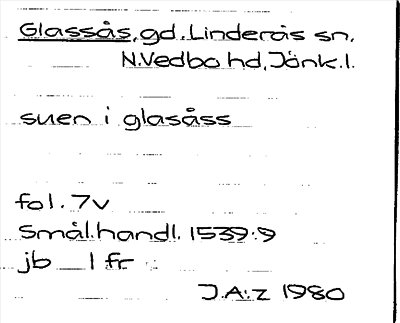 Glassås, gd. Linderås sn,
N.Vedbo hd, Jönk.l.
suen i glasåss
fol. 7v
Smål.handl. 1539:9
jb __ 1 fr
J.A:z 1980